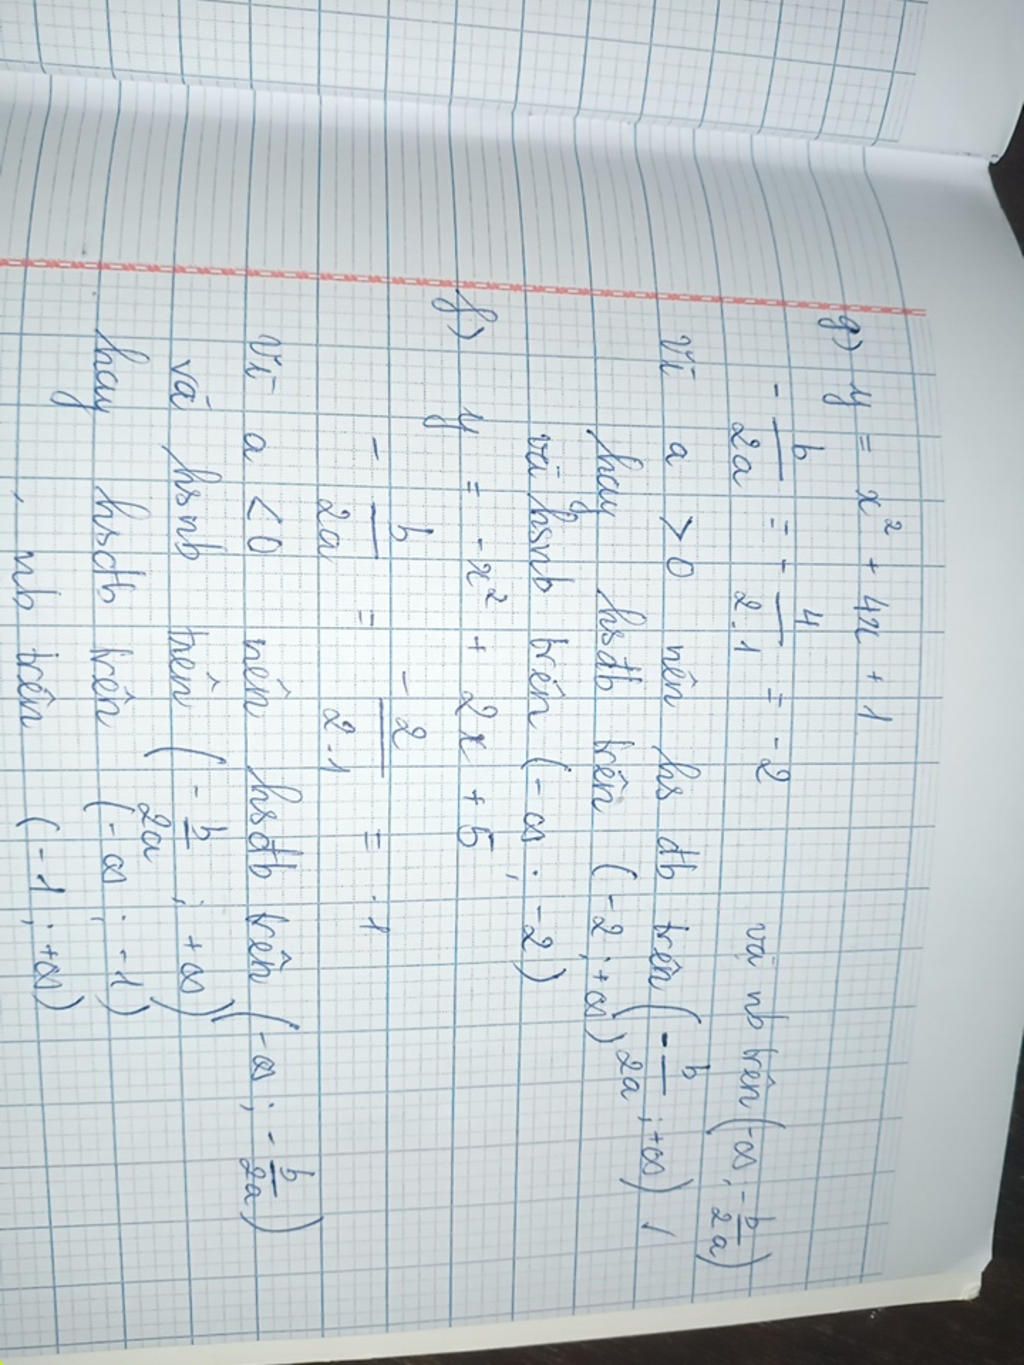 g) y = x² + 4x + 1
- b/2a = - 4/2.1 = -2
và nb trên (-∞; -b/2a)
Vì a > 0 nên hs đb trên (-b/2a ; +∞)
hay hsđb trên (-2; +∞)
và hsnb trên (-∞; -2)
f) y = -x² + 2x + 5
- b/2a = - 2/2.1 = -1
Vì a < 0 nên hsđb trên (-∞; -b/2a)
và hsnb trên (-b/2a ; +∞)
hay hsđb trên (-∞; -1)
, nb trên (-1; +∞)